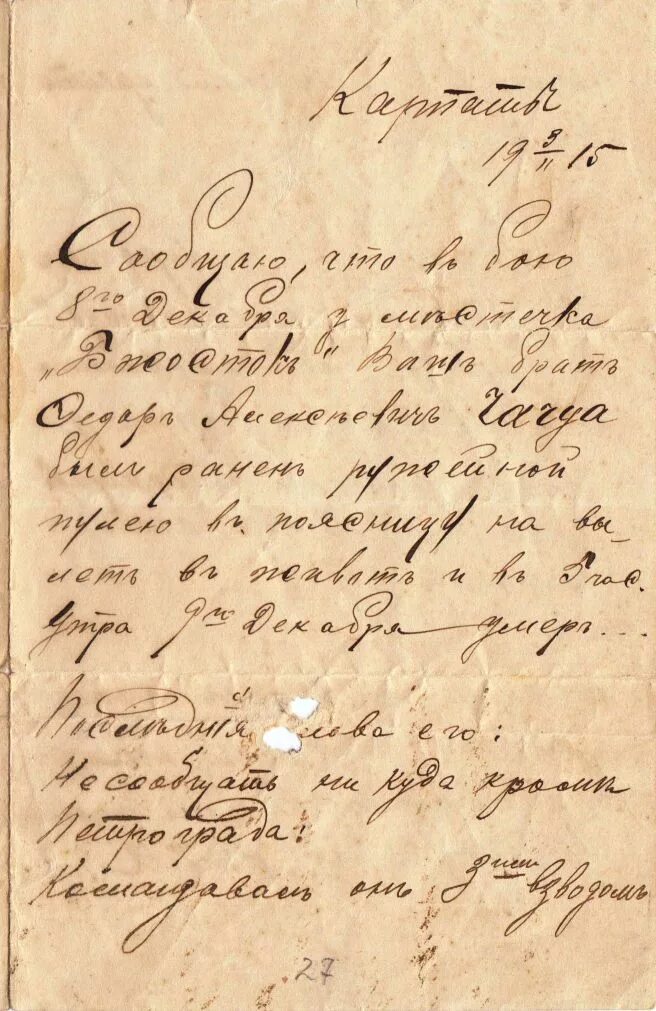 Карпаты
19 9/II 15
Сообщаю, что въ бою
8го Декабря у мѣстечка
„Бжостокъ" Вашъ братъ
Федоръ Алексѣевичъ Чачуа
былъ раненъ ружейной
пулею въ поясницу на вы-
летъ въ животъ и въ 5 час.
утра 9го Декабря умеръ...
Послѣднія слова его:
Не сообщать ни куда кромѣ
Петрограда!
Командовалъ онъ 3имъ взводомъ
27